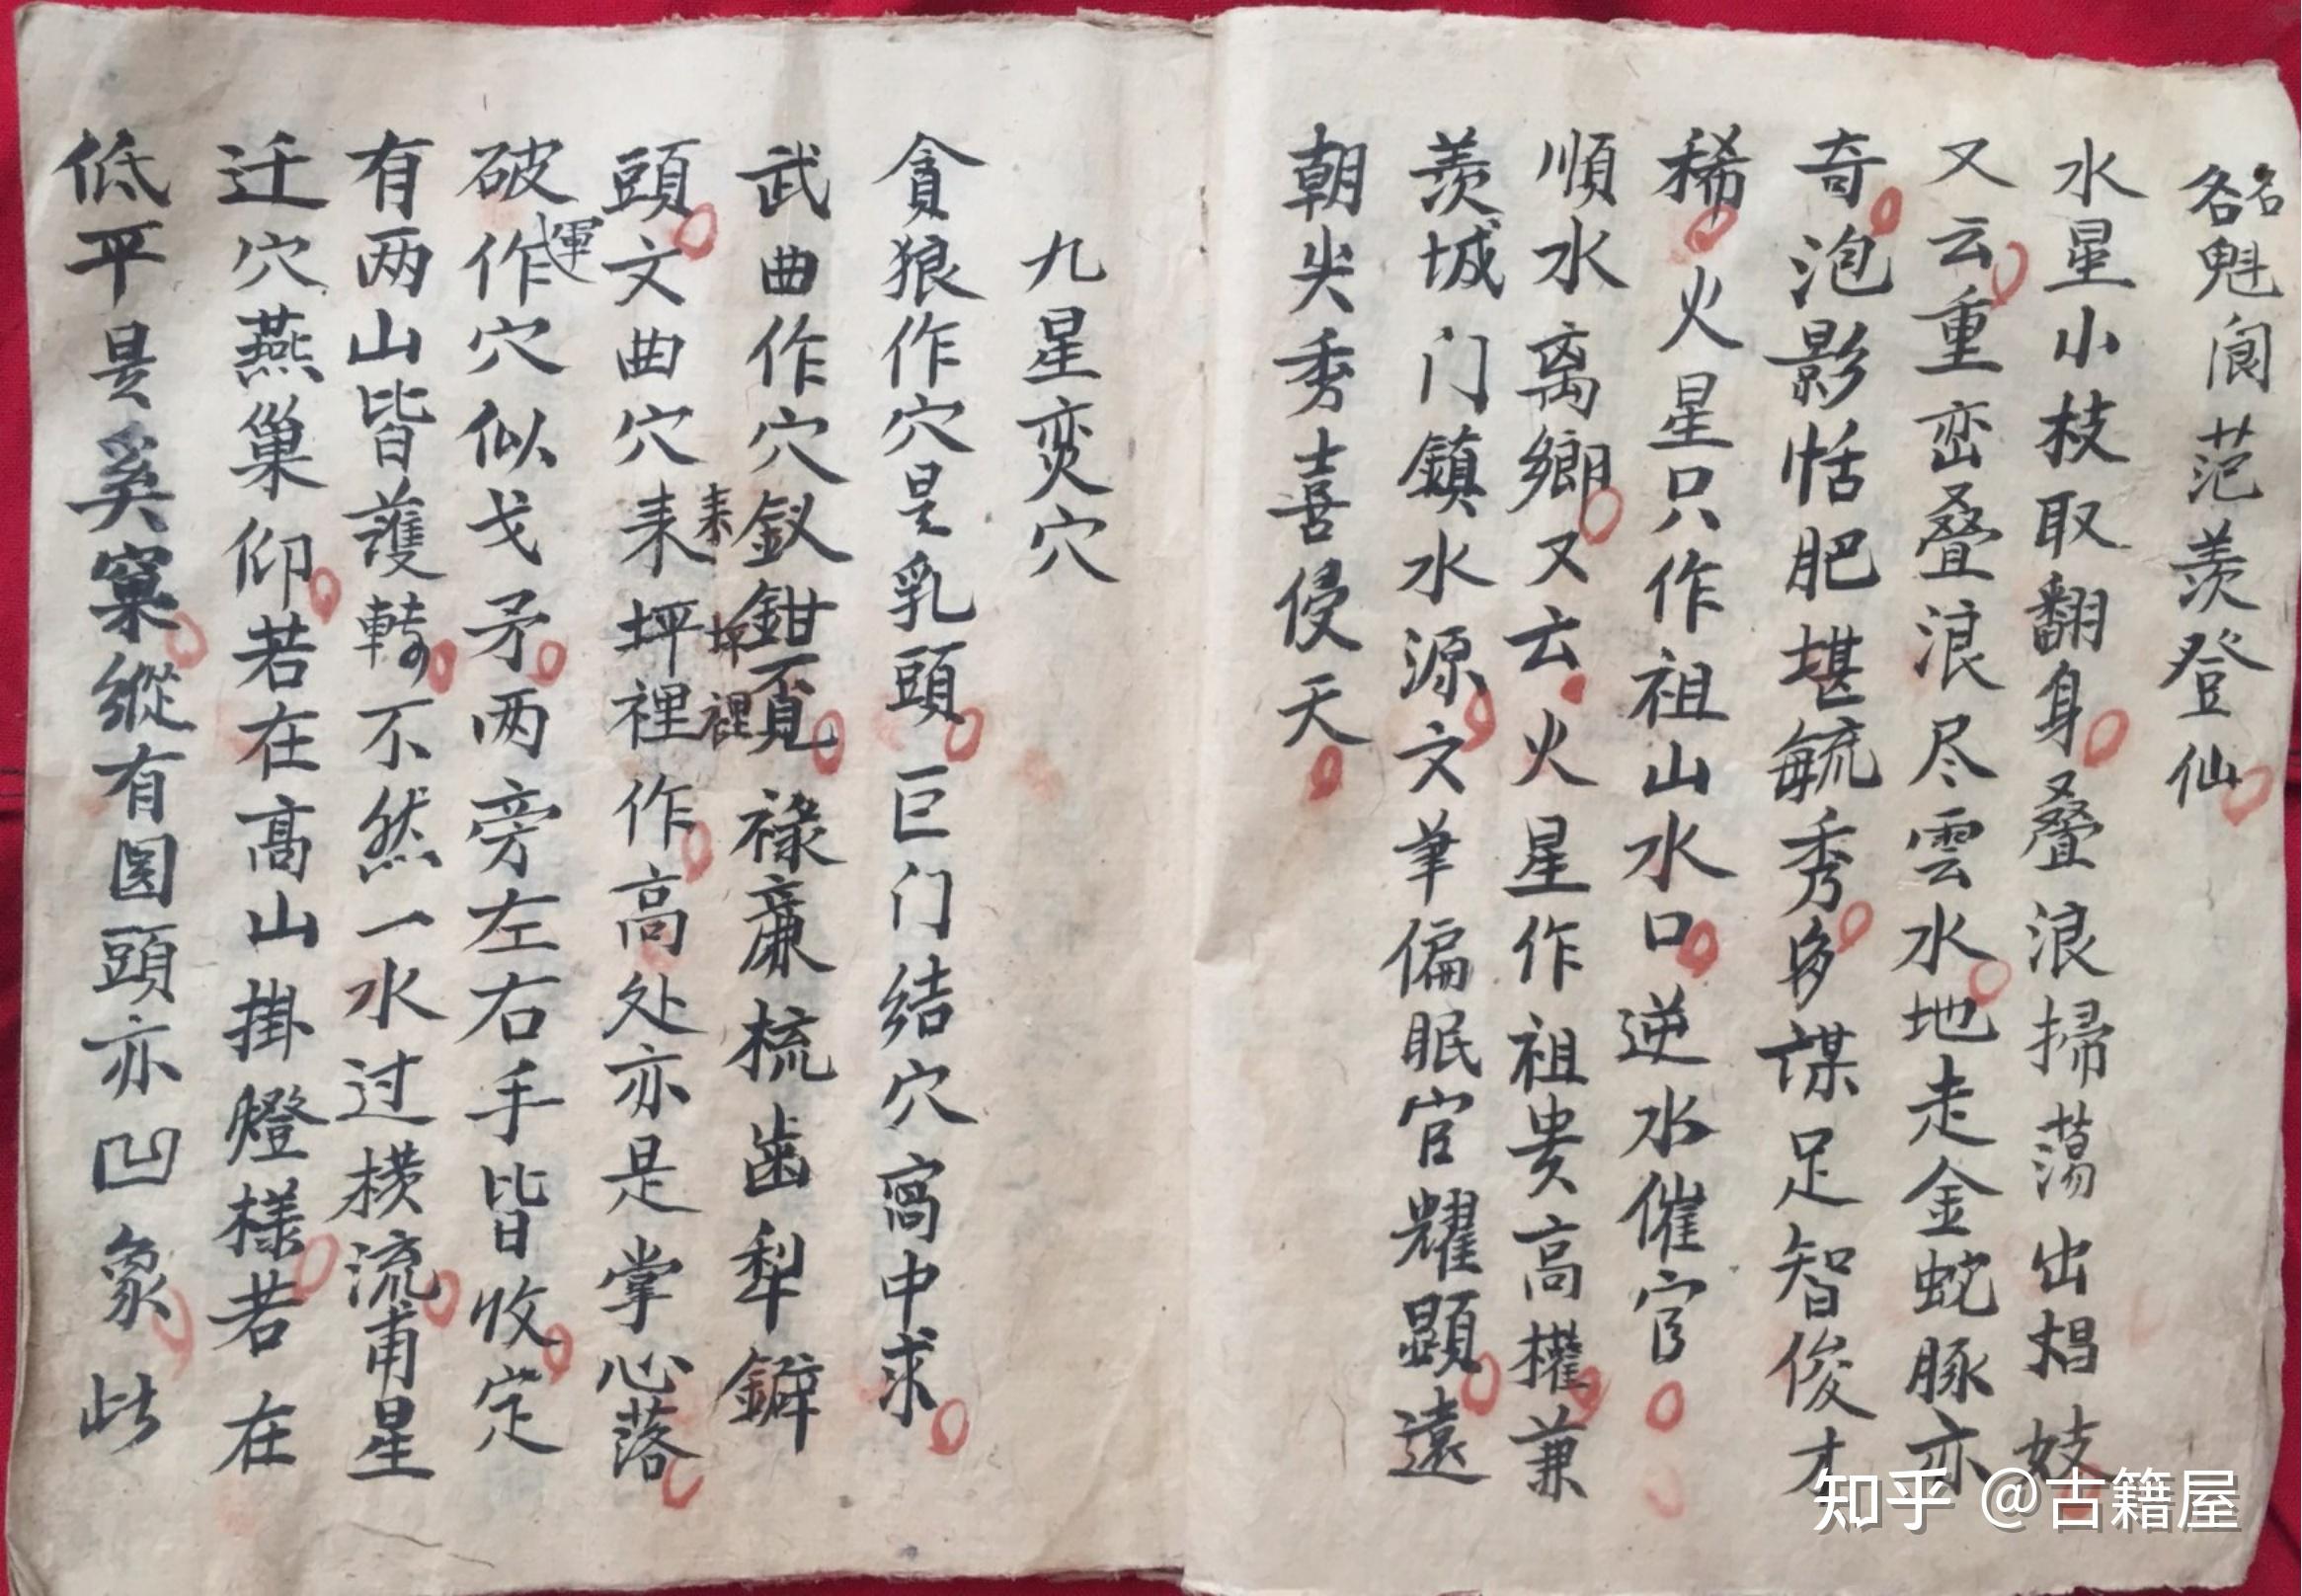 名魁阆范羨登仙
水星小枝取翻身叠浪掃荡出娼妓
又云重峦叠浪尽雲水地走金蛇豚亦
奇泡影恬肥堪毓秀多謀足智俊才
稀火星只作祖山水口逆水催官
順水离鄉又云火星作祖贵高權兼
羨城门鎮水源文筆偏眠官耀顕遠
朝尖秀喜侵天
九星変穴
貪狼作穴是乳頭巨门结穴窩中求
武曲作穴釵鉗覓禄廉梳齒犁鐴
頭文曲穴来坪裡作高处亦是掌心落
来坪裡
破軍作穴似戈矛两旁左右手皆收定
有两山皆護轉不然一水过横流甫星
迁穴燕巢仰若在高山掛燈様若在
低平是奚窠縱有圆頭亦凹象此
知乎 @古籍屋